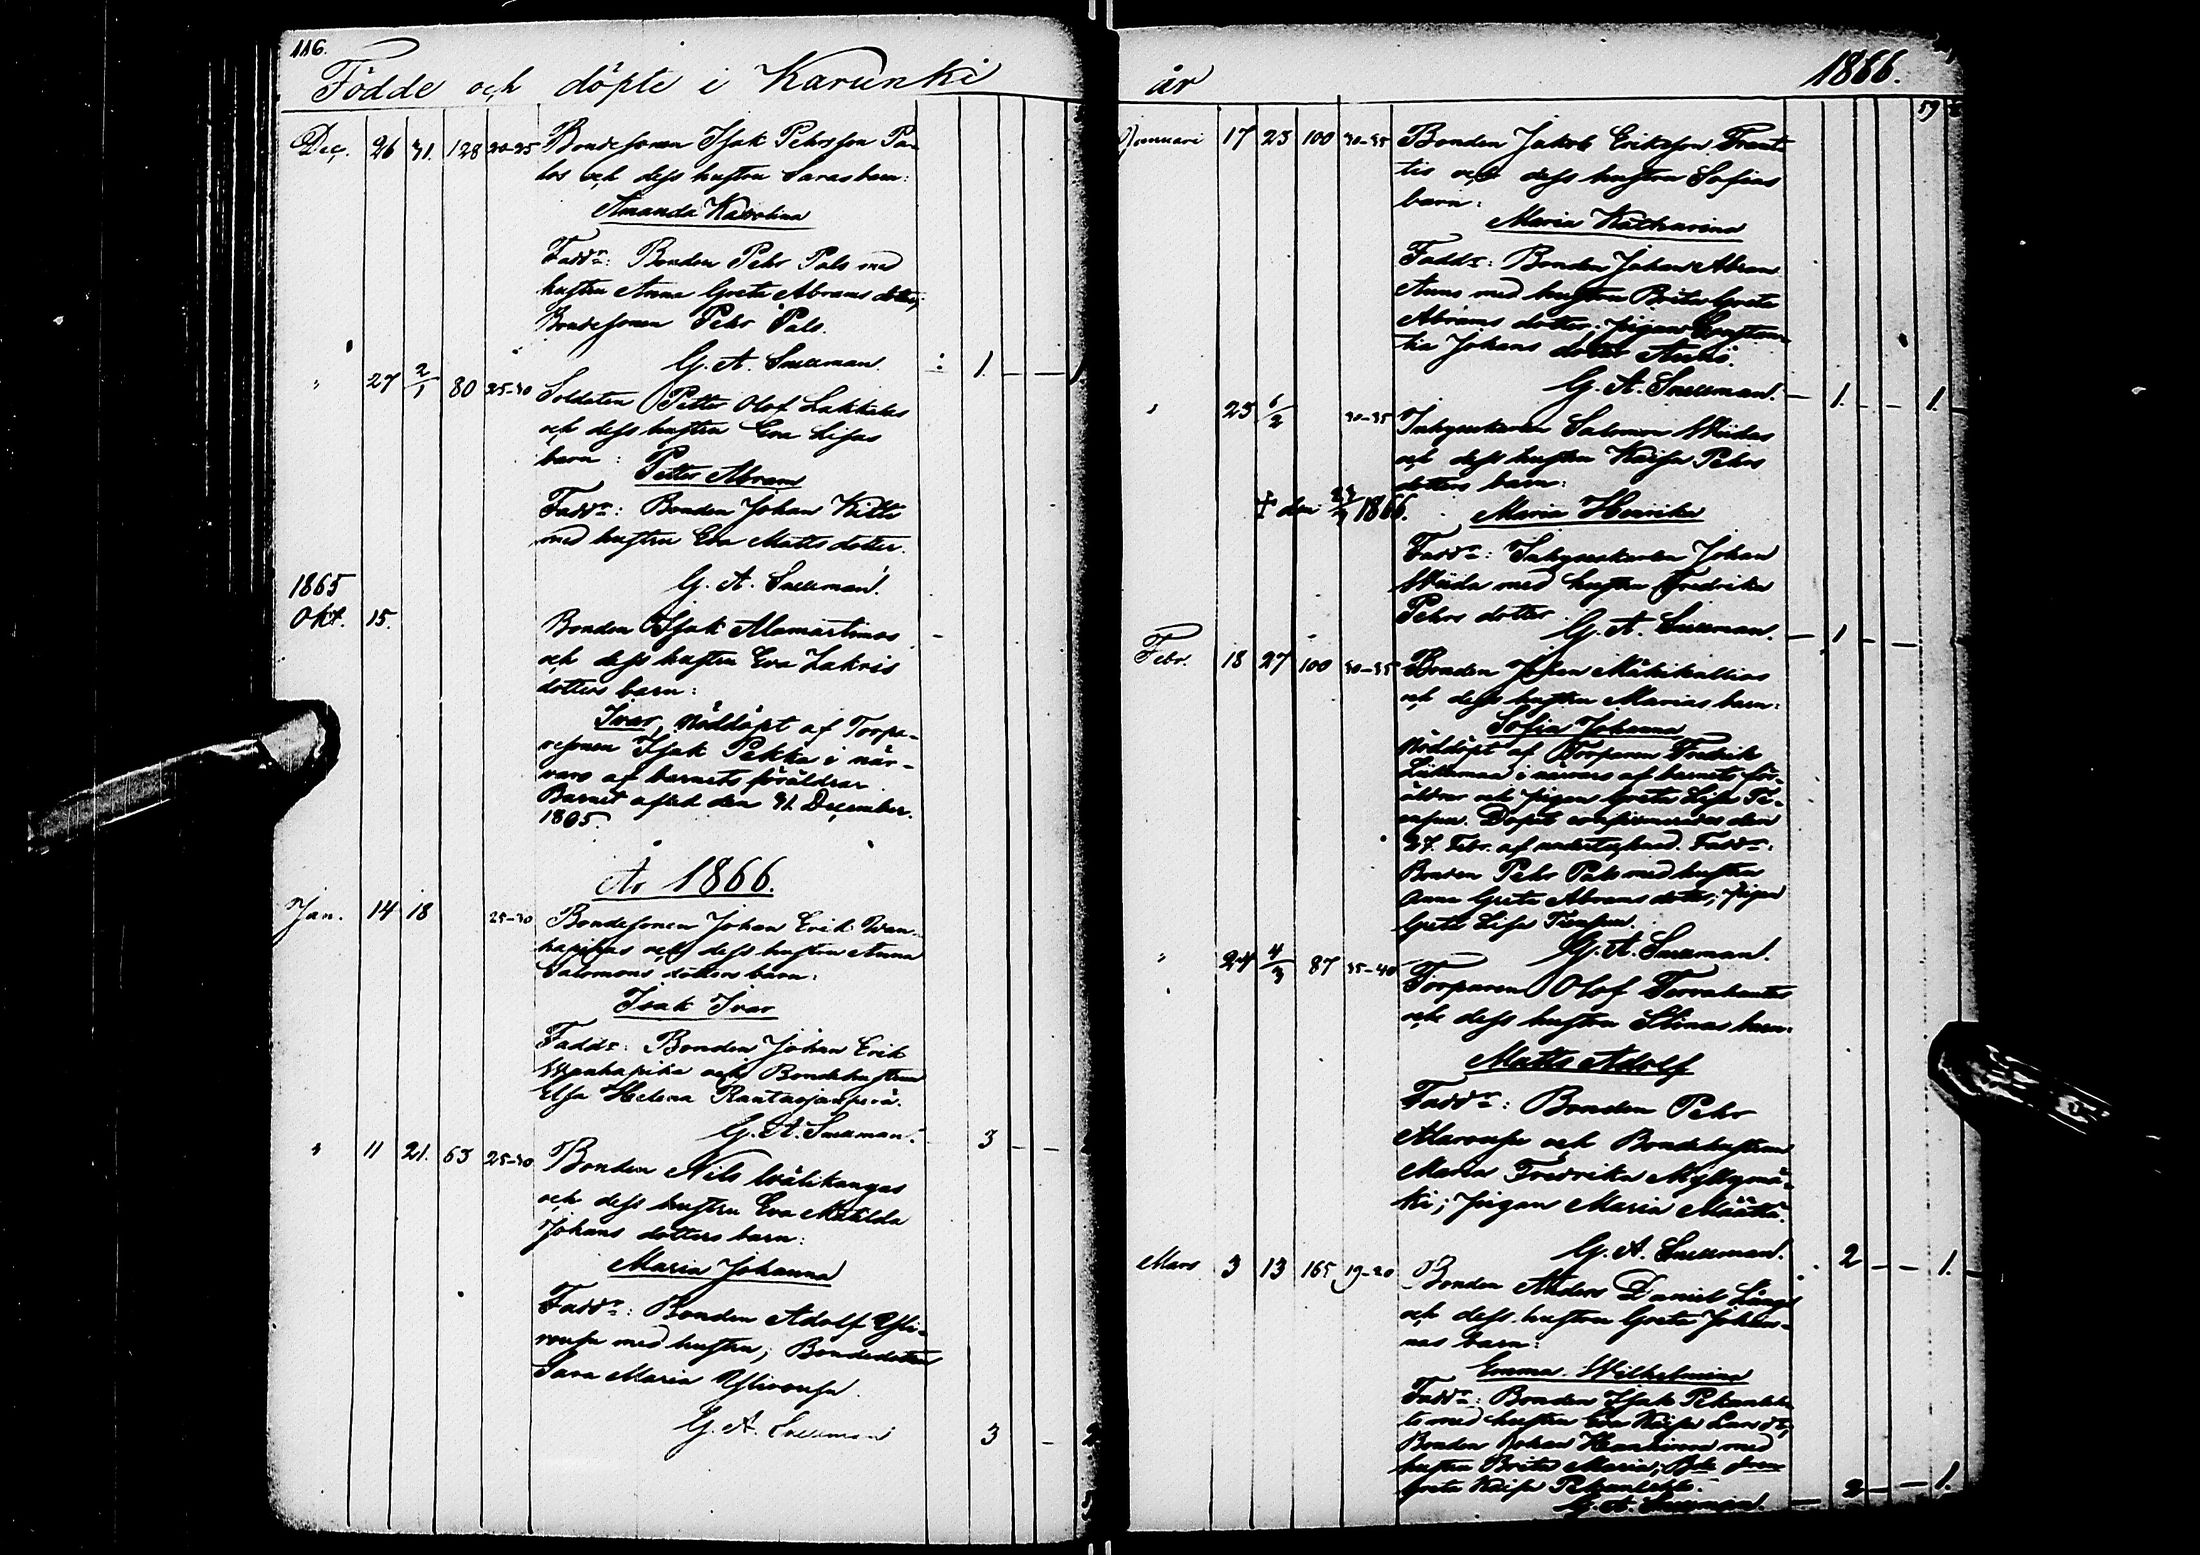 116.
Födde och döpte i Karunki
Dec. 26 31. 128 20-25 Bondesonen Isak Pehrsson Pa-
los och dess hustru Saras barn:
Amanda Karolina
Fadd:r: Bonden Pehr Palo med
hustru Anna Greta Abrams dotter;
Bondesonen Pehr Palo.
G. A. Snellman. 1.
" 27 2/1 80 25-30 Soldaten Petter Olof
och dess hustru Eva Lisas
barn:
Petter Abram
Fadd:r: Bonden Johan Kitti
med hustru Eva Matts dotter.
G. A. Snellman.
1865
Okt. 15. Bonden Isak Alamartimos
och dess hustru Eva Zakris
dotters barn:
Ivar, Nöddöpt af Torpa-
resonen Isak Pekka i när-
varo af barnets föräldrar.
Barnet afled den 31. December.
1865.
År 1866.
Jan. 14 18 25-30 Bondesonen Johan Erik Wan-
hapihas och dess hustru Anna
Salomons dotters barn:
Isak Ivar
Fadd:r: Bonden Johan Erik
Wanhapiha och Bondehustrun
Elsa Helena Rantasjanperä.
G. A. Snellman. 3 - -
" 11 21. 63 25-30 Bonden Nils Wälikangas
och dess hustru Eva Matilda
Johans dotters barn:
Maria Johanna
Fadd:r: Bonden Adolf Yli-
roufa med hustru; Bondedottren
Sara Maria Yliroufa.
G. A. Snellman 3 -
år 1866.
59
Januari 17 23 100 30-35 Bonden Jakob Eriksson Frant-
tis och dess hustru Sofias
barn:
Maria Katharina
Fadd:r: Bonden Johan Abram
med hustru Brita Greta
Abrams dotter; pigan Constan-
tia Johans dotter
G. A. Snellman. 1. 1.
" 25 6/2 30-35 Inhysekarlen Salomon Wiidas
och dess hustru Kaisa Pehrs
dotters barn:
† den 1866. Maria Henrika
Fadd:r: Inhysekarlen Johan
Wiida med hustru Fredrika
Pehrs dotter.
G. A. Snellman. 1
Febr. 18 27 100 30-35 Bonden Johan Mäkikallios
och dess hustru Marias barn:
Sofia Johanna
Nöddöpt af Torparen Fredrik
i närvaro af barnets för-
äldrar och pigan Greta Lisa
Dopet confirmerades den
27. Febr. af undertecknad. Fadd:r:
Bonden Pehr Palo med hustru
Anna Greta Abrams dotter; pigan
Greta Lisa
G. A. Snellman.
" 24 4/3 87 35-40 Torparen Olof
och dess hustru Stinas barn:
Matts Adolf
Fadd:r: Bonden Pehr
Alaroufa och Bondehustrun
Maria Fredrika Myllymä-
ki; pigan Maria Määttä.
G. A. Snellman. 2 1.
Mars 3 13 165 19-20 Bonden Anders Daniel
och dess hustru Greta Johan-
nas barn:
Emma Wilhelmina
Fadd:r: Bonden Isak
med hustru Eva Kaisa Lars dr;
Bonden Johan med
hustru Brita Maria;
Greta Kaisa
G. A. Snellman. 2 1.